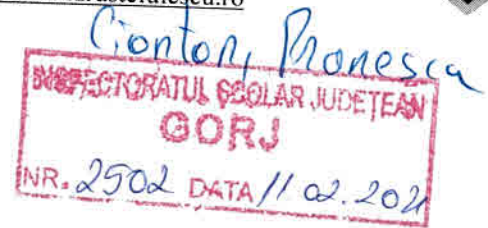 Ciontor, Pronesca
INSPECTORATUL ŞCOLAR JUDEŢEAN
GORJ
NR. 2502 DATA 11 02. 202